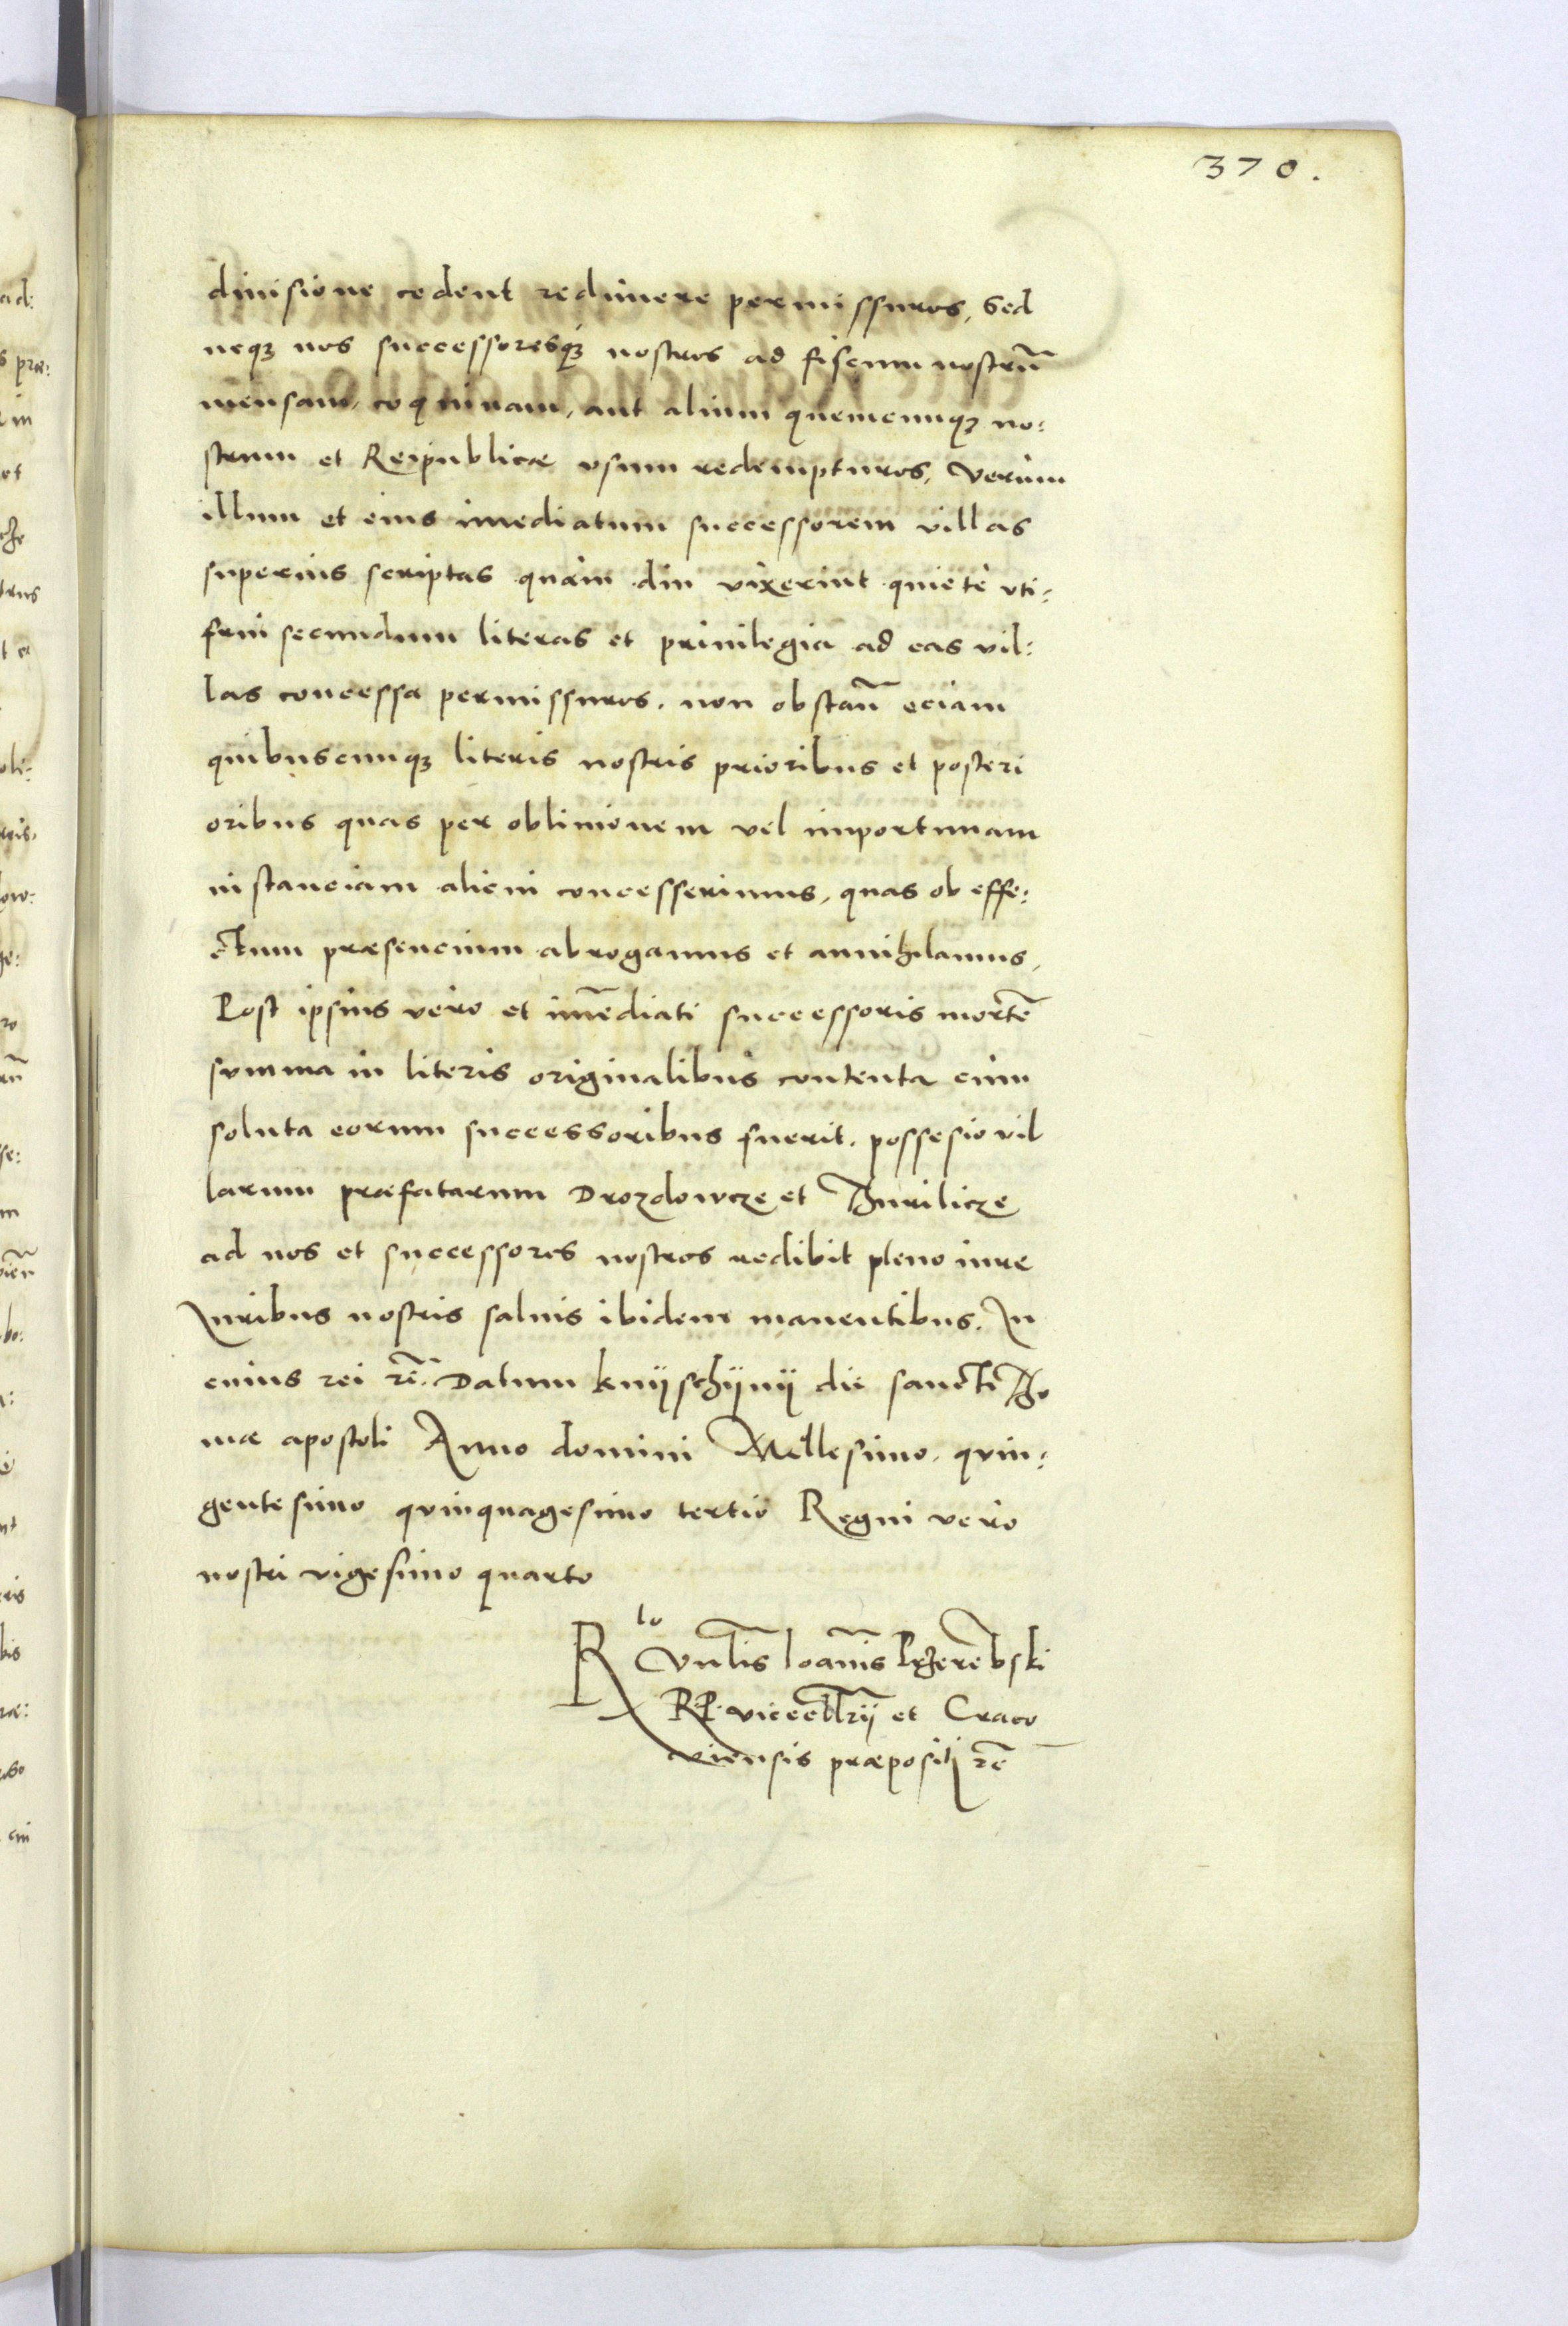 370.
diuisione cedent redimere permissuros, Sed
neqꝫ nos successoresqꝫ nostros ad fiscum nostrū
mensam, coquinam, aut alium quemcunqꝫ no:
strum et Reipublicæ vsum redempturos, Verum
illum et eius imediatum successorem villas
superius scriptas quàm diu vixerint quietè vti:
frui secundum literas et priuilegia ad eas vil:
las concessa permissuros. non obstan̄ eciam
quibuscunqꝫ literis nostris prioribus et posteri
oribus quas per obliuionem vel importunam
instanciam alicui concesserimus, quas ob effe:
ctum præsencium abrogamus et annihilamus,
Post ipsius verò et im̄ediati successoris mortē
summa in literis originalibus contenta cum
soluta eorum successoribus fuerit. possesio vil
larum præfatarum Drozdowcze et Thurilicze
ad nos et successores nostros redibit pleno iure
Iuribus nostris saluis ibidem manentibus. In
cuius rei rē. Datum knÿschÿnÿ die sancti Tho
mæ apostoli Anno domini Millesimo. quin:
gentesimo quinquagesimo tertio Regni verò
nostri vigesimo quarto
R lo Vnlīs Ioan̄is Przerēbski
RP. viceca͞llrÿ et Craco
viensis præpositi rē
ad:
s præ:
in